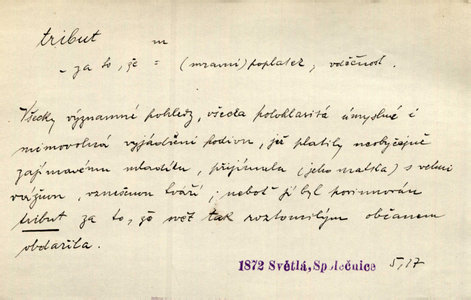 tribut m
- za to, že = (mravní) poplatek, vděčnost.
Všecky významné pohledy, všecka polohlasitá úmyslně i
mimovolná vyjádření podivu, jež platily neobyčejně
zajímavému mladíku, přijímala (jeho matka) s velmi
vážnou, vznešenou tváří; neboť jí byl povinován
tribut za to, že svět tak roztomilým občanem
obdařila.
1872 Světlá, Společnice 5,17